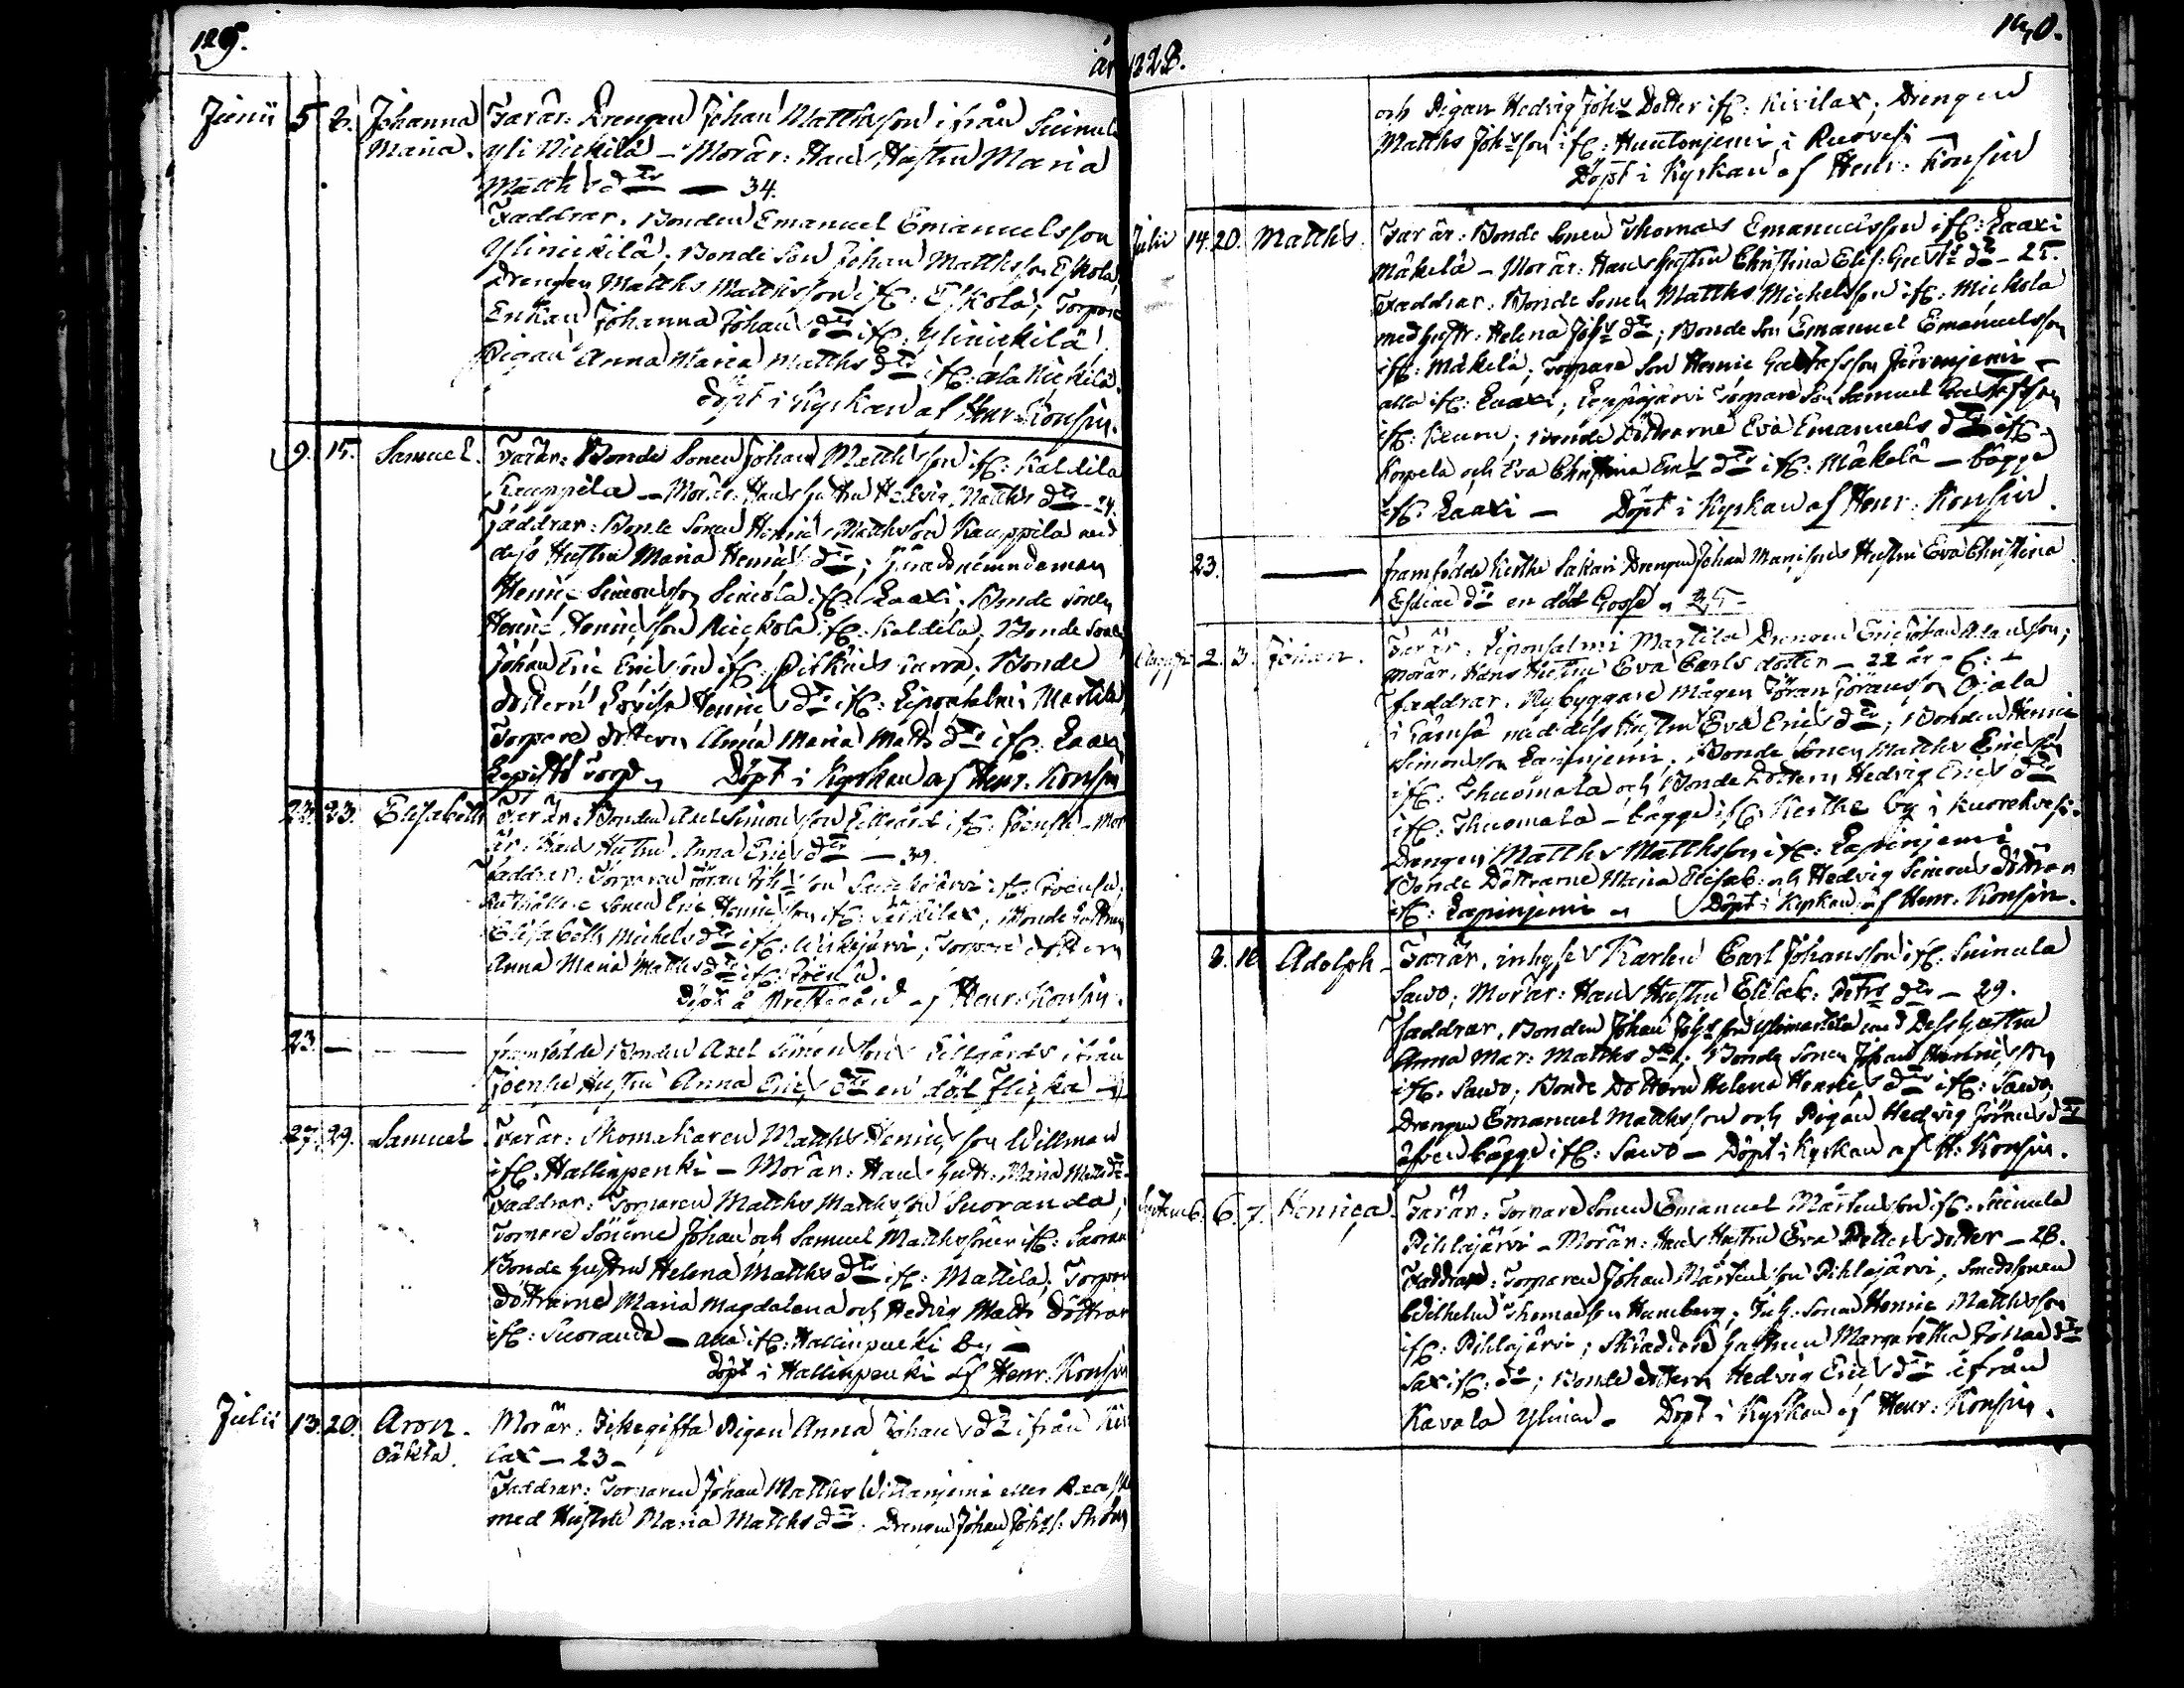 129.
år 1828.
Junii 5 8. Johanna Maria.
Far är: Drengen Johan Matthsson ifrån Suinula
yli Nickilä – Mor är: Hans Hustru Maria
Matths dtr — 34.
Faddrar. Bonden Emanuel Emanuelsson
Ylinickilä; Bonde Son Johan Matthsson Eskola,
Drengen Matths Matthsson ifr: Eskola; Torpare
Enkan Johanna Johans dtr ifr: Ylinickilä
Pigan Anna Maria Matths dtr ifr: ala Nickilä.
döpt i Kyrkan af Henr: Konsin.
9. 15. Samuel.
Far är: Bonde Sonen Johan Matthsson ifr: Kaldila
Kauppila – Mor är: Hans Hustru Hedvig Matths dtr – 24.
Faddrar: Bonde Sonen Henric Matthsson Kauppila med
dess Hustru Maria Henrics dtr; Häradsnämndeman
Henric Simonsson Simola ifr: Laaxi; Bonde Sonen
Henric Henricsson Nickola ifr: Kaldila; Bonde Sonen
Johan Eric Ericsson ifr: Pitkäis ; Bonde
dottern Lovisa Henrics dtr ifr: Leponselmi Martila
Torpare dottern Anna Maria Matts dtr ifr: Laaxi
Lepistö Torp – Döpt i Kyrkan af Henr. Konsin
22. 23. Elisabeth
Far är: Bonden Axel Simonsson Lillgård ifr: Joensu – Mor
är: Hans Hustru Anna Erics dtr — 39.
Faddrar: Torparen Göran Johsson ifr: Joensu;
Sonen Eric Henricsson ifr: ; Bonde dottern
Elisabeth Michels dtr ifr: ; Torpare dottern
Anna Maria Matths dtr ifr: Joensu.
Döpt å Prestegård af Henr: Konsin.
23. — —
framfödde Bonden Axel Simonssons Lillgårds ifrån
Joensu Hustru Anna Erics dtr en död Flicka –
27. 29. Samuel
Far är: Skomakaren Matths Henricsson Willman
ifr. Hallinpenki – Mor är: Hans Hustr: Maria Matts dtr
Faddrar: Torparen Matths Matthsson Suoranda;
Torpare Sönerne Johan och Samuel Matthssöner ifr: Suoran
Bonde Hustru Helena Matths dtr ifr: Mattila; Torpare
döttrarne Maria Magdalena och Hedvig Matts Döttrar
ifr: Suoranda – alla ifr: Hallinpenki By –
döpt i Hallinpenki af Henr: Konsin
Julii 13. 20. Aron. oäkta.
Mor är: Ickegiffta Pigan Anna Johans dtr ifrån Kivi
lax – 23 –
Faddrar: Torparen Johan Matths Wittaniemi eller
med Hustru Maria Matths dtr. Drengen Johan Johss:
140.
och Pigan Hedvig Johs Dotter ifr: Kivilax; Drengen
Matths Johsson ifr: Huutoniemi i Ruovesi –
Döpt i Kyrkan af Henr: Konsin
Julii 14. 20. Matths.
Far är: Bonde Sonen Thomas Emanuelsson ifr: Laaxi
Mäkelä – Mor är: Hans Hustru Christina Elis: Gust: dtr – 25.
Faddrar: Bonde Sonen Matths Michelsson ifr: Mickola
med Hustr: Helena Johs dtr; Bonde Son Emanuel Emanuelsson
ifr: Mäkelä; Torpare Son Henric Gustafsson Järvenjemi –
alla ifr: Laaxi; Leppäjärvi Torpare Son Samuel Gustafsson
ifr: Keuru; Bonde Döttrarne Eva Emanuels dtr ifr:
Korpela och Eva Christina Em: dtr ifr: Mäkelä – bägge
ifr: Laaxi – Döpt i Kyrkan af Henr: Konsin.
23. —
framfödde Kertte Sakari Drengen Johan Hustru Eva Christina
dtr en död Gosse – 35 –
Augusti 2. 3. Johan.
Far är. Leponsalmi Martila Drengen Eric Johan Adamsson;
Mor är. Hans Hustru Eva Carls dotter – 22 år –
Faddrar. Nybyggare Mågen Jöran Jöransson Ojala
i Jämsä med dess Hustru Eva Erics dtr; Bonden Henric
Simonsson Lapinjemi; Bonde Sonen Matths Ericsson
ifr: Thuomala och Bonde Dottern Hedvig Erics dtr
ifr: Thuomala – bägge ifr: Kertte by i Kuorehvesi.
Drengen Matths Matthsson ifr: Lapinjemi
Bonde Döttrarne Maria Elisab: och Hedvig Simons döttrar
ifr: Lapinjemi – Döpt i Kyrkan af Henr. Konsin.
8. 10. Adolph
Far är. inhyses Karlen Carl Johansson ifr: Suinula
Sawo; Mor är: Hans Hustru Elisab: Petrs dtr – 29.
Faddrar. Bonden Johan Johsson Ylimartila med Dess Hustru
Anna Mar: Matths dtr; Bonde Sonen Johan Henricsson
ifr: Sawo; Bonde Dottern Helena Henrics dtr ifr: Sawo;
Drengen Emanuel Matthsson och Pigan Hedvig Jörans dtr
äfven bägge ifr: Sawo – Döpt i Kyrkan af H: Konsin.
Septemb. 6. 7. Henrica.
Far är: Torpare Sonen Emanuel Mårtensson ifr: Suinula
Pihlajärvi – Mor är: Hans Hustru Eva Petters dotter – 28.
Faddrar: Torparen Johan Mårtensson Pihlajärvi, Smedssonen
Wilhelm Thomasson Humberg; Inh: Sonen Henric Matthsson
ifr: Pihlajärvi; Skräddare Hustrun Margaretha Johans dtr
Sax ifr: do; Bonde dottern Hedvig Erics dtr ifrån
Kavala Ylinen – Döpt i Kyrkan af Henr: Konsin.